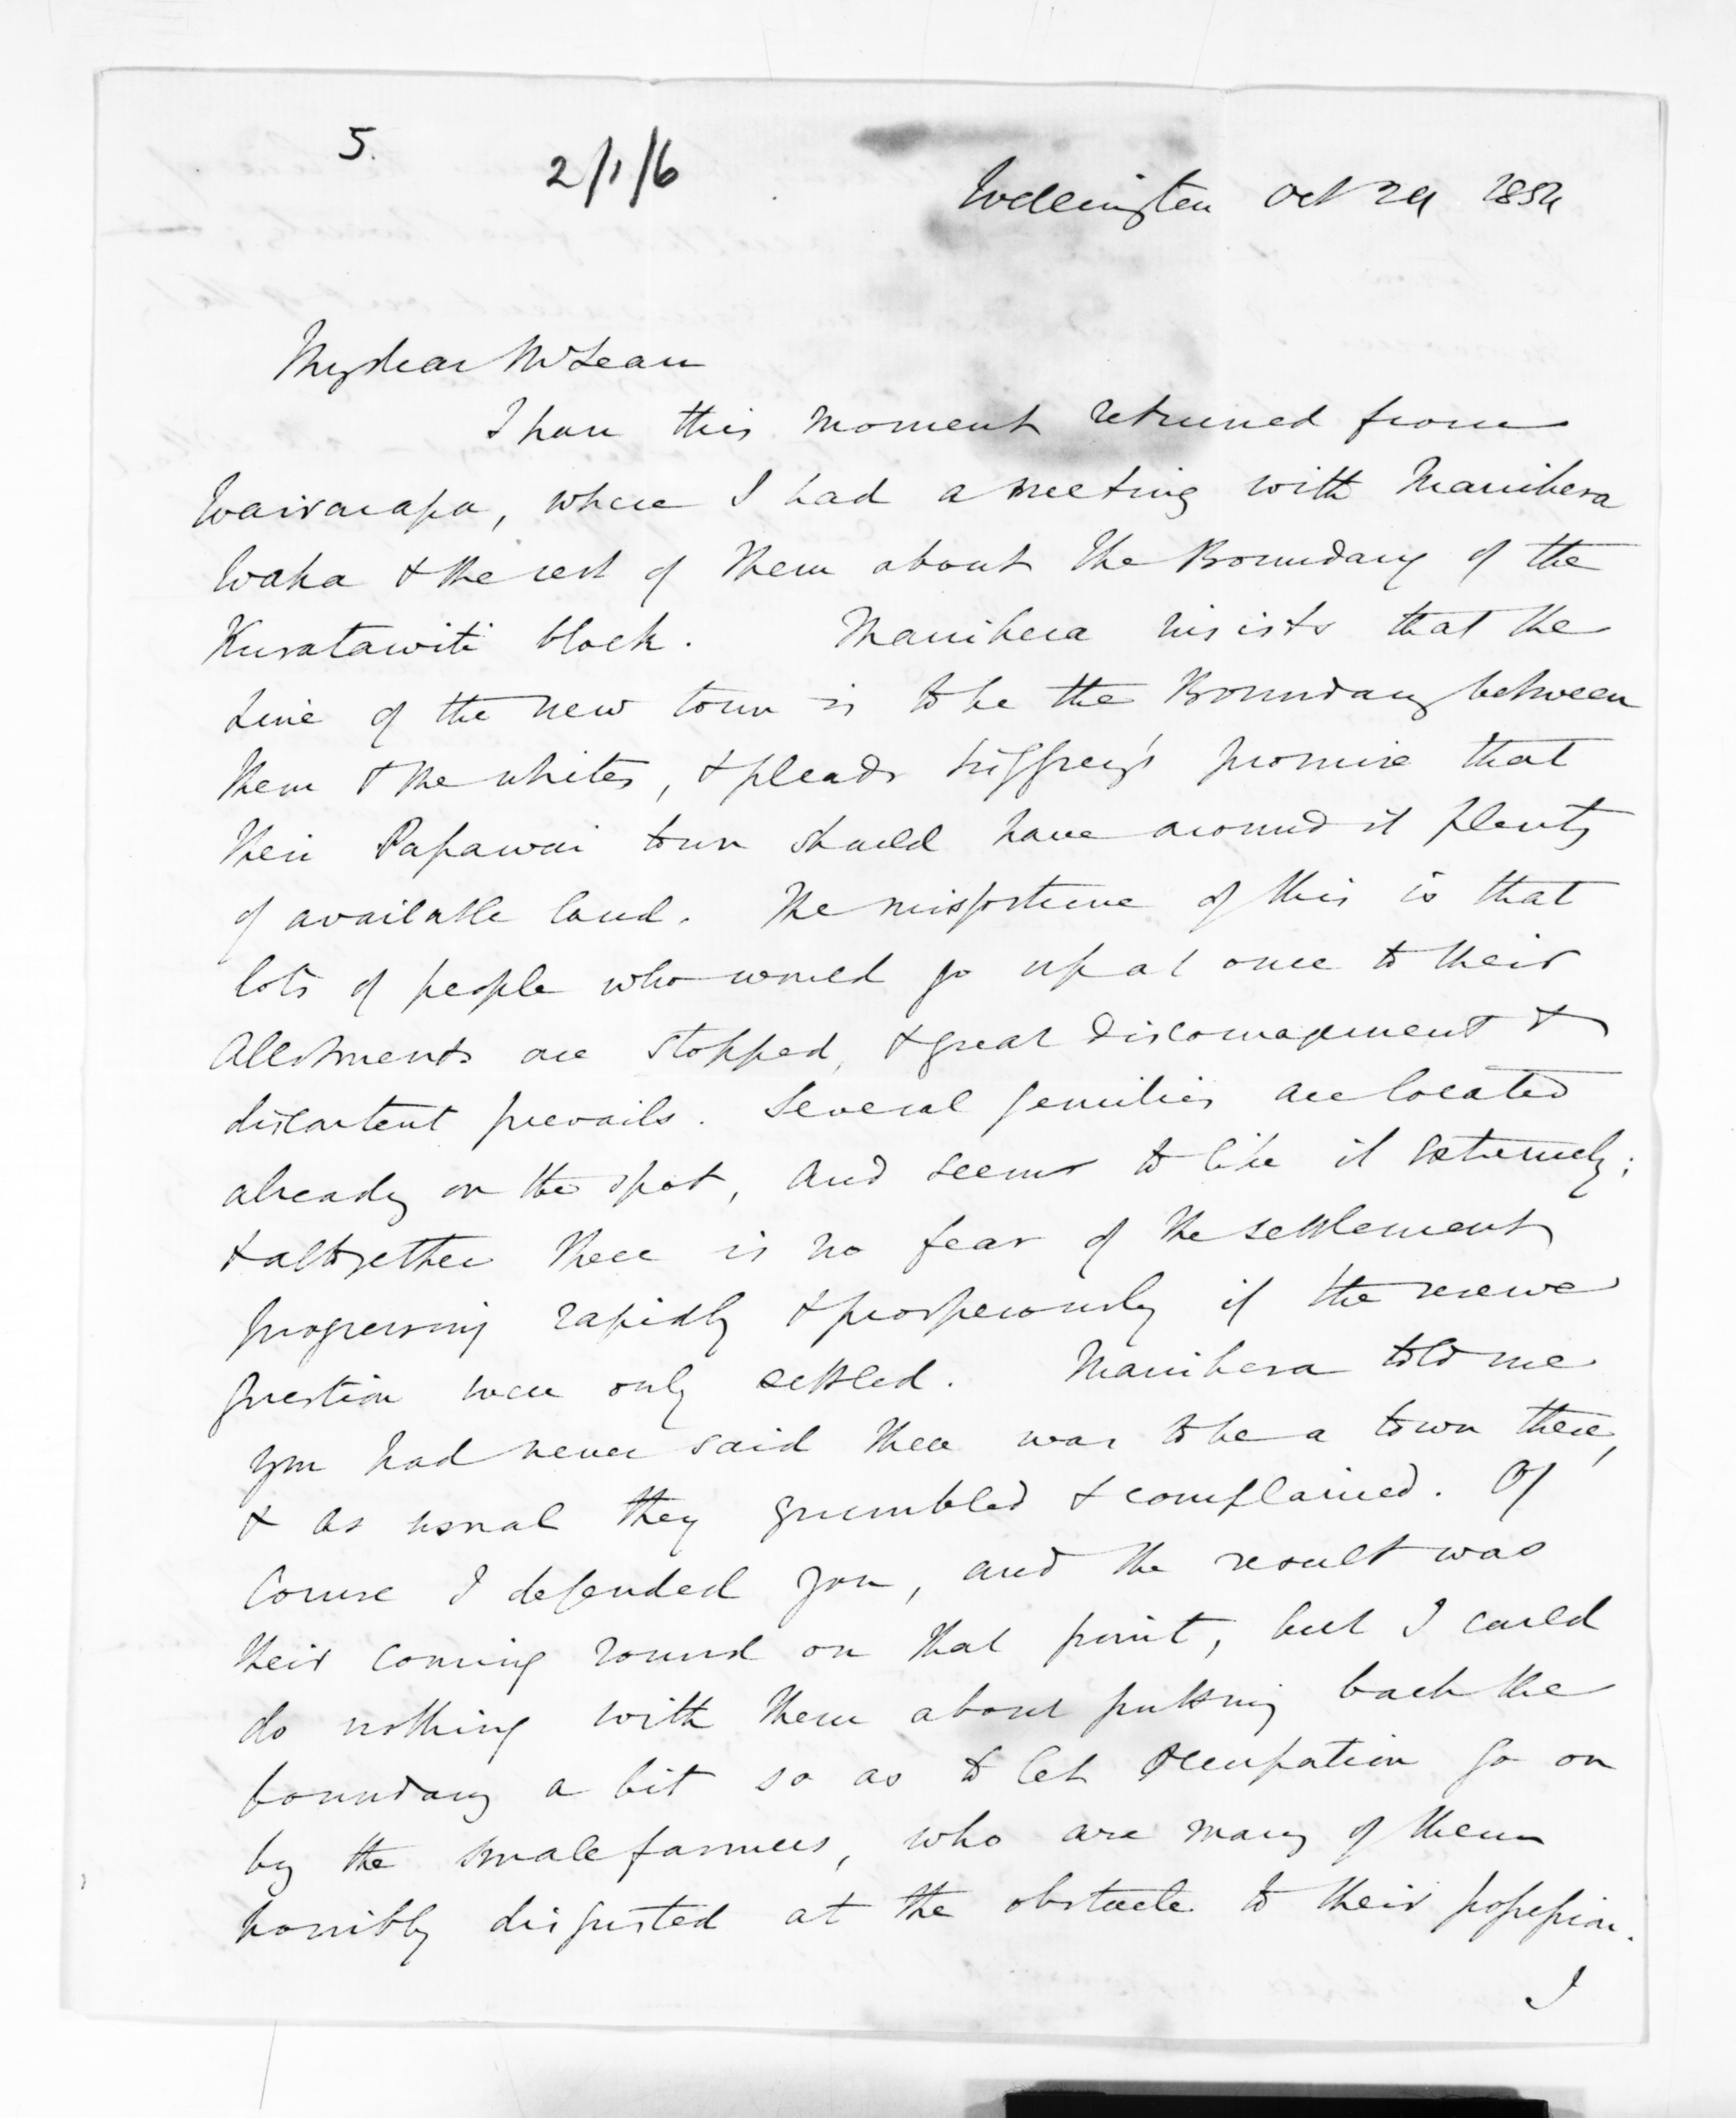 5.
2/1/6
Wellington Oct 24 1854
My dear McLean
I have this moment returned from
Wairarapa, where I had a meeting with Manihera
Waka & the rest of them about the Boundary of the
Kuratawiti block. Manihera insists that the
Line of the new town is to be the Boundary between
them & the whites, & pleads promise that
their Papawai town should have around it plenty
of available land. The misfortune of this is that
lots of people who would go up at once to their
Allotments are stopped, & great discouragement &
discontent prevails. Several families are located
already on the spot, and seems to like it extremely;
& altogether there is no fear of the settlement
progressing rapidly & prosperously if the reserve
question were only settled. Manihera told me
you had never said there was to be a town there,
& as usual they grumbled & complained. Of
Course I defended you, and the result was
their coming round on that point, but I could
do nothing with them about putting back the
boundary a bit so as to let occupation go on
by the small farmers, who are many of them
horribly disgusted at the obstacle to their possession.
I